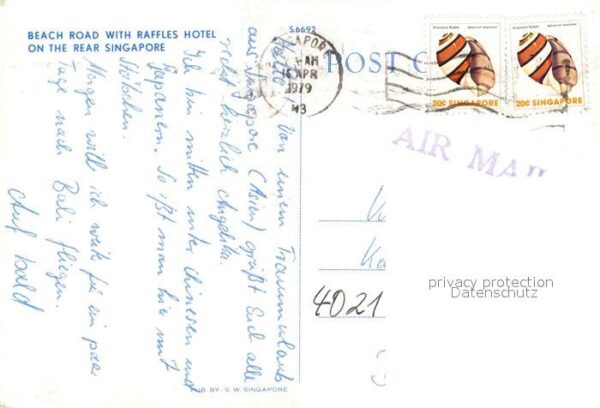 BEACH ROAD WITH RAFFLES HOTEL
ON THE REAR SINGAPORE
S6692
POST C
SINGAPORE
AM
APR
1979
43
20c SINGAPORE
20c SINGAPORE
AIR MAIL
Hallo! Von einem Traumurlaub
aus Singapore (Asien) grüßt Euch alle
recht herzlich Angelika.
Ich bin mitten unter Chinesen und
Japanern. So ißt man hier mit
Stäbchen.
Morgen will ich weiter für ein paar
Tage nach Bali fliegen.
Auf bald
4021
privacy protection
Datenschutz
PUB. BY - S.W. SINGAPORE